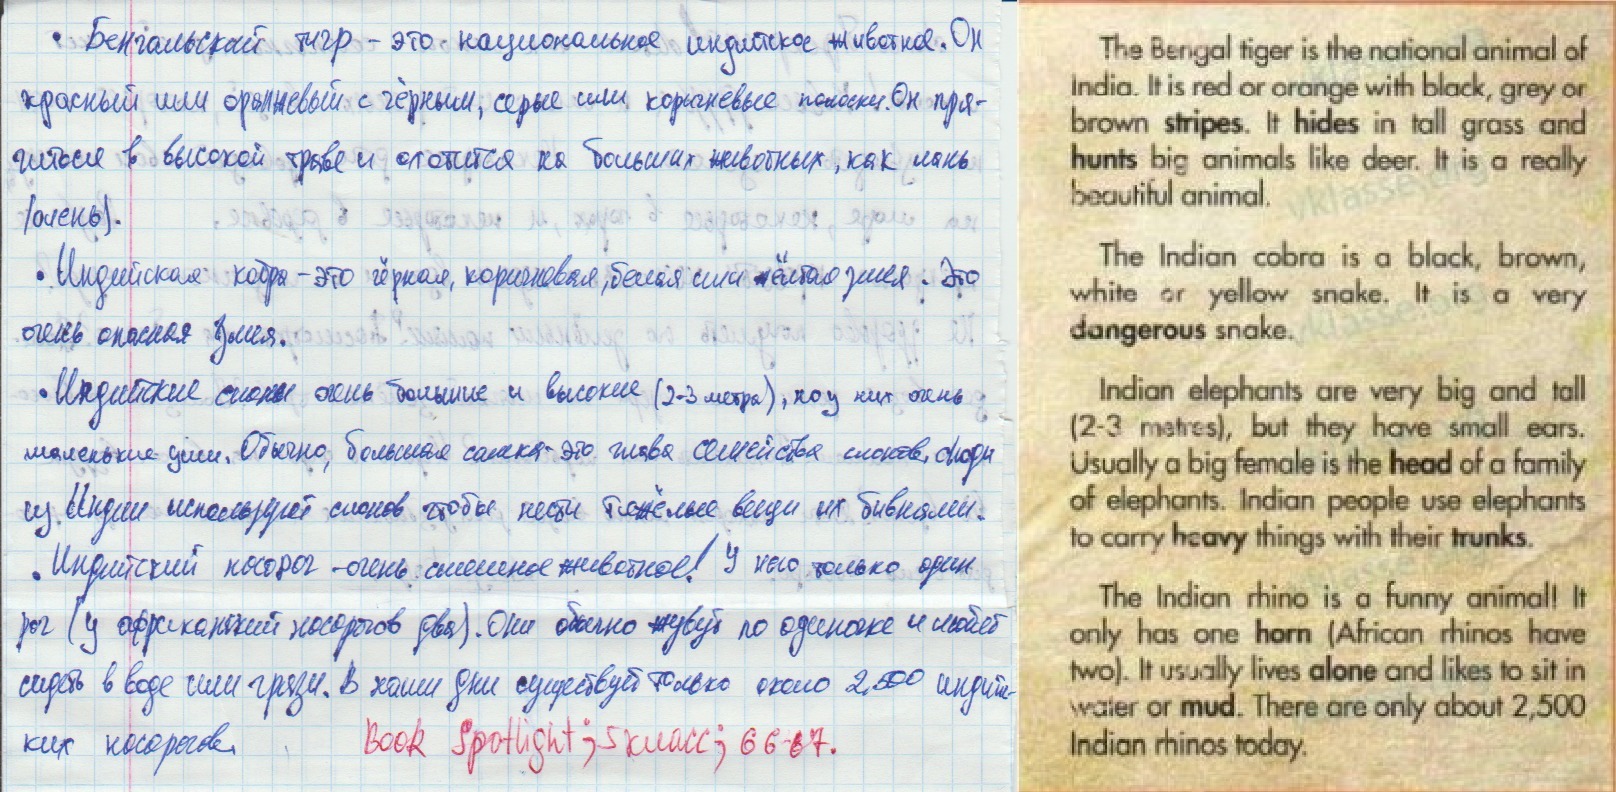 • Бенгальский тигр - это национальное индийское животное. Он
красный или оранжевый с чёрным, серые или коричневые полоски. Он пря-
читося в высокой траве и охотится на больших животных, как лань
(олень).
• Индийская кобра - это чёрная, коричневая, белая или жёлтая змея. Это
очень опасная змея.
• Индийские слоны очень большие и высокие (2-3 метра), но у них очень
маленькие уши. Обычно, большая самка - это глава семейства слонов. Люди
из Индии используют слонов чтобы нести тяжёлые вещи их бивнями.
• Индийский носорог - очень смешное животное! У него только один
рог (у африканский носорогов два). Они обычно живут по одиночке и любят
сидеть в воде или грязи. В наши дни существует только около 2,500 индийс-
ких носорогов.
Book Spotlight; 5 класс; 66-67.
The Bengal tiger is the national animal of
India. It is red or orange with black, grey or
brown stripes. It hides in tall grass and
hunts big animals like deer. It is a really
beautiful animal.
The Indian cobra is a black, brown,
white or yellow snake. It is a very
dangerous snake.
Indian elephants are very big and tall
(2-3 metres), but they have small ears.
Usually a big female is the head of a family
of elephants. Indian people use elephants
to carry heavy things with their trunks.
The Indian rhino is a funny animal! It
only has one horn (African rhinos have
two). It usually lives alone and likes to sit in
water or mud. There are only about 2,500
Indian rhinos today.
vklasse.org